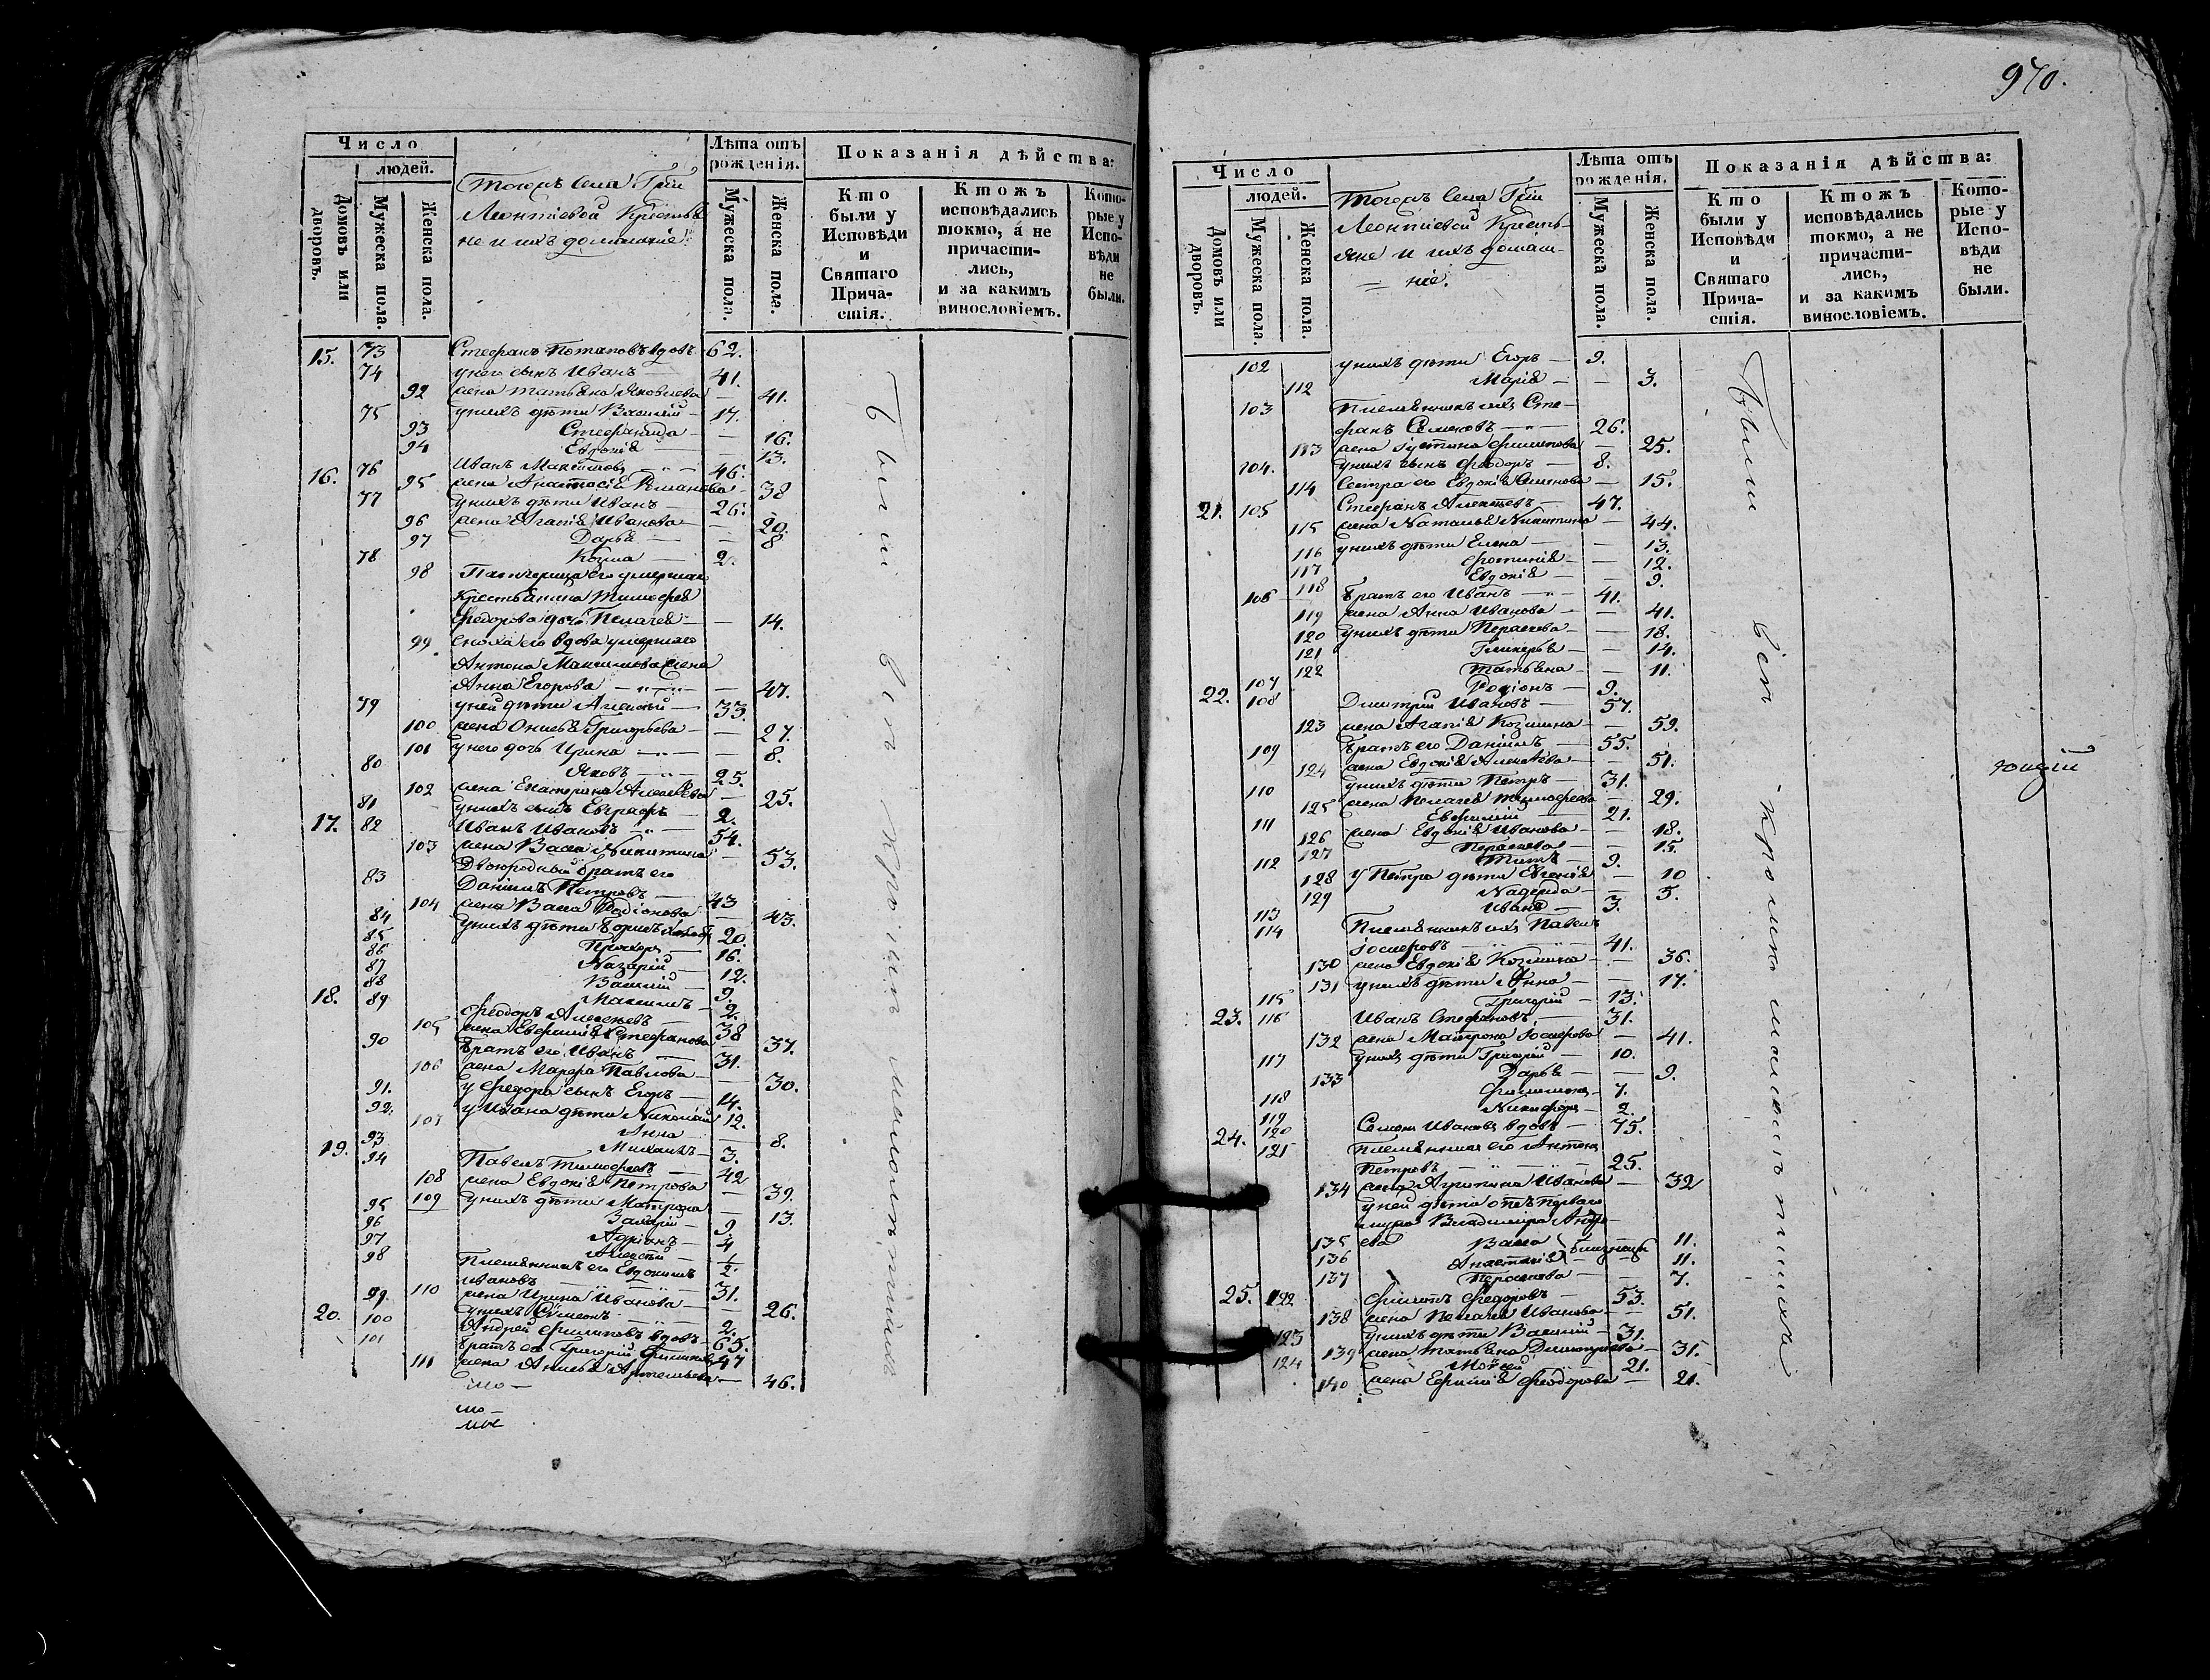 Число
людей.
Домовъ или дворовъ.
Мужеска пола.
Женска пола.
Тогожъ Села Г\
Леонтіевой Крестья
не и ихъ домашніе:
Лѣта отъ рожденія.
Мужеска пола.
Женска пола.
Показанія дѣйства:
Кто были у Исповѣди и Святаго Причастія.
Ктожъ исповѣдались токмо, а не причастились, и за какимъ винословіемъ.
Которые у Исповѣди не были.
15. 73 Стефанъ Потаповъ вдовъ 62.
74 у него сынъ Иванъ 41.
92 жена Татьяна Яковлева 41.
75 у нихъ дѣти Василій 17.
93 Стефанида 16.
94 Евдокія 13.
16. 76 Иванъ Максимовъ 46.
95 жена Анастасія Романова 38
77 у нихъ дѣти Иванъ 26.
96 жена Агапія Иванова 20.
97 Дарья 8
78 Козма 2.
98 Патчерица его умершаго
крестьянина Тимофея
Федорова дочь Пелагея 14.
99 сноха его вдова умершаго
Антона Максимова жена
Анна Егорова 47.
79 у ней дѣти Алексѣй 33.
100 жена Ониья Григорьева 27.
101 у него дочь Ирина 8.
80 Яковъ 25.
102 жена Екатерина Алексѣева 25.
81 у нихъ сынъ Евграфъ 2.
17. 82 Иванъ Ивановъ 54.
103 жена Васса Никитина 53.
Двоюродный братъ его
83 Даніилъ Петровъ 43
104 жена Васса Родіонова 43.
84 у нихъ дѣти Борисъ 20.
85 Прохоръ 16.
86 Назарій 12.
87 Василій 9.
88 Максимъ 2.
18. 89 Феодоръ Алексѣевъ 38
105 жена Евфимія Стефанова 37.
90 братъ его Иванъ 31.
106 жена Марфа Павлова 30.
91. у Федора сынъ Егоръ 14.
92. у Ивана дѣти Николай 12.
107 Анна 8.
93 Михаилъ 3.
19. 94 Павелъ Тимофеевъ 42
108 жена Евдокія Петрова 39.
109 у нихъ дѣти Матрона 13.
95 Захарій 9
96 Адріанъ 4
97 Алексѣй
98 Племянникъ его Евдокимъ
Ивановъ 31.
110 жена Ирина Иванова 26.
99. у нихъ Симеонъ 2.
20. 100 Андрей Филиповъ вдовъ 65.
101 братъ его Григорій Филиповъ 47
111 жена Анисья Артемьева 46.
Были вси кромѣ малолѣтнихъ
970.
Число
людей.
Домовъ или дворовъ.
Мужеска пола.
Женска пола.
Тогожъ Села
Леонтіевой Кресть-
яне и ихъ домаш-
ніе.
Лѣта отъ рожденія.
Мужеска пола.
Женска пола.
Показанія дѣйства:
Кто были у Исповѣди и Святаго Причастія.
Ктожъ исповѣдались токмо, а не причастились, и за какимъ винословіемъ.
Которые у Исповѣди не были.
102 у нихъ дѣти Егоръ 9.
112 Марія 3.
103 Племянникъ ихъ Сте-
фанъ Семеновъ 26.
113 жена Іустина Филипова 25.
104. у нихъ сынъ Феодоръ 8.
114 Сестра его Евдокія Семенова 15.
21. 105 Стефанъ Алексѣевъ 47.
115 жена Наталья Никитина 44.
116 у нихъ дѣти Елена 13.
117 Фотинія 12.
118 Евдокія 9.
106 братъ его Иванъ 41.
119 жена Анна Иванова 41.
120 у нихъ дѣти Параскева 18.
121 Гликерья 14.
122 Татьяна 11.
107 Родіонъ 9.
22. 108 Димитрій Ивановъ 57.
123 жена Агапія Козмина 59.
109 братъ его Даніилъ 55.
124 жена Евдокія Алексѣева 51.
110 у нихъ дѣти Петръ 31.
125 жена Пелагея Тимофеева 29.
111 Евфимій 21.
126 жена Евдокія Иванова 18.
127 Параскева 15.
112 Титъ 9.
128 у Петра дѣти Евгенія 10
129 Надежда 5.
113 Иванъ 3.
114 Племянникъ ихъ Павелъ
Іосифовъ 41.
130 жена Евдокія Козмина 36.
131 у нихъ дѣти Анна 17.
115 Григорій 13.
23. 116 Иванъ Стефановъ 31.
132 жена Матрона Іосифова 41.
117 у нихъ дѣти Григорій 10.
133 Дарья 9.
118 Филимонъ 7.
119 Никифоръ 2.
24. 120 Семенъ Ивановъ вдовъ 75.
121 Племянникъ его Антонъ
Петровъ 25.
134 жена Агрипина Иванова 32
у ней дѣти отъ перваго
мужа Владимира Андре-
135 ева Васса близнецы 11.
136 Анастасія 11.
137 Параскева 7.
25. 122 Филипъ Федоровъ 53.
138 жена Пелагея Иванова 51.
123 у нихъ дѣти Василій 31.
139 жена Татьяна Димитріева 31.
124 Мойсей 21.
140 жена Ефимія Феодорова 21.
Были вси кромѣ малолѣтнихъ